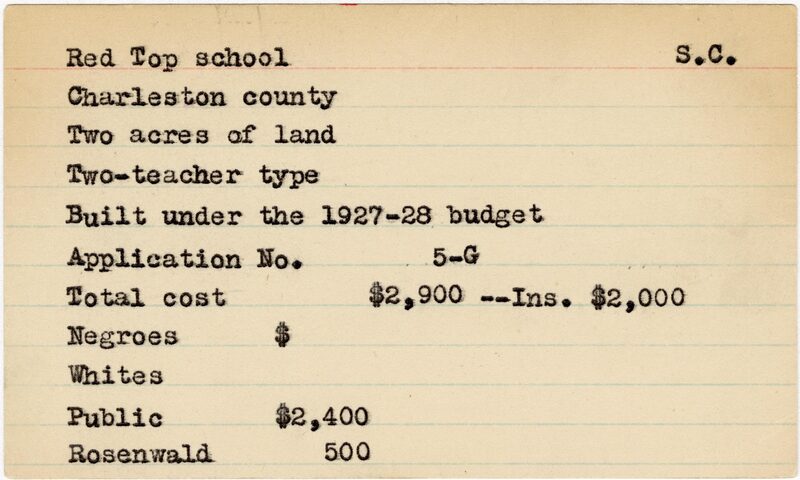 Red Top school S.C.
Charleston county
Two acres of land
Two-teacher type
Built under the 1927-28 budget
Application No. 5-G
Total cost $2,900 --Ins. $2,000
Negroes $
Whites
Public $2,400
Rosenwald 500